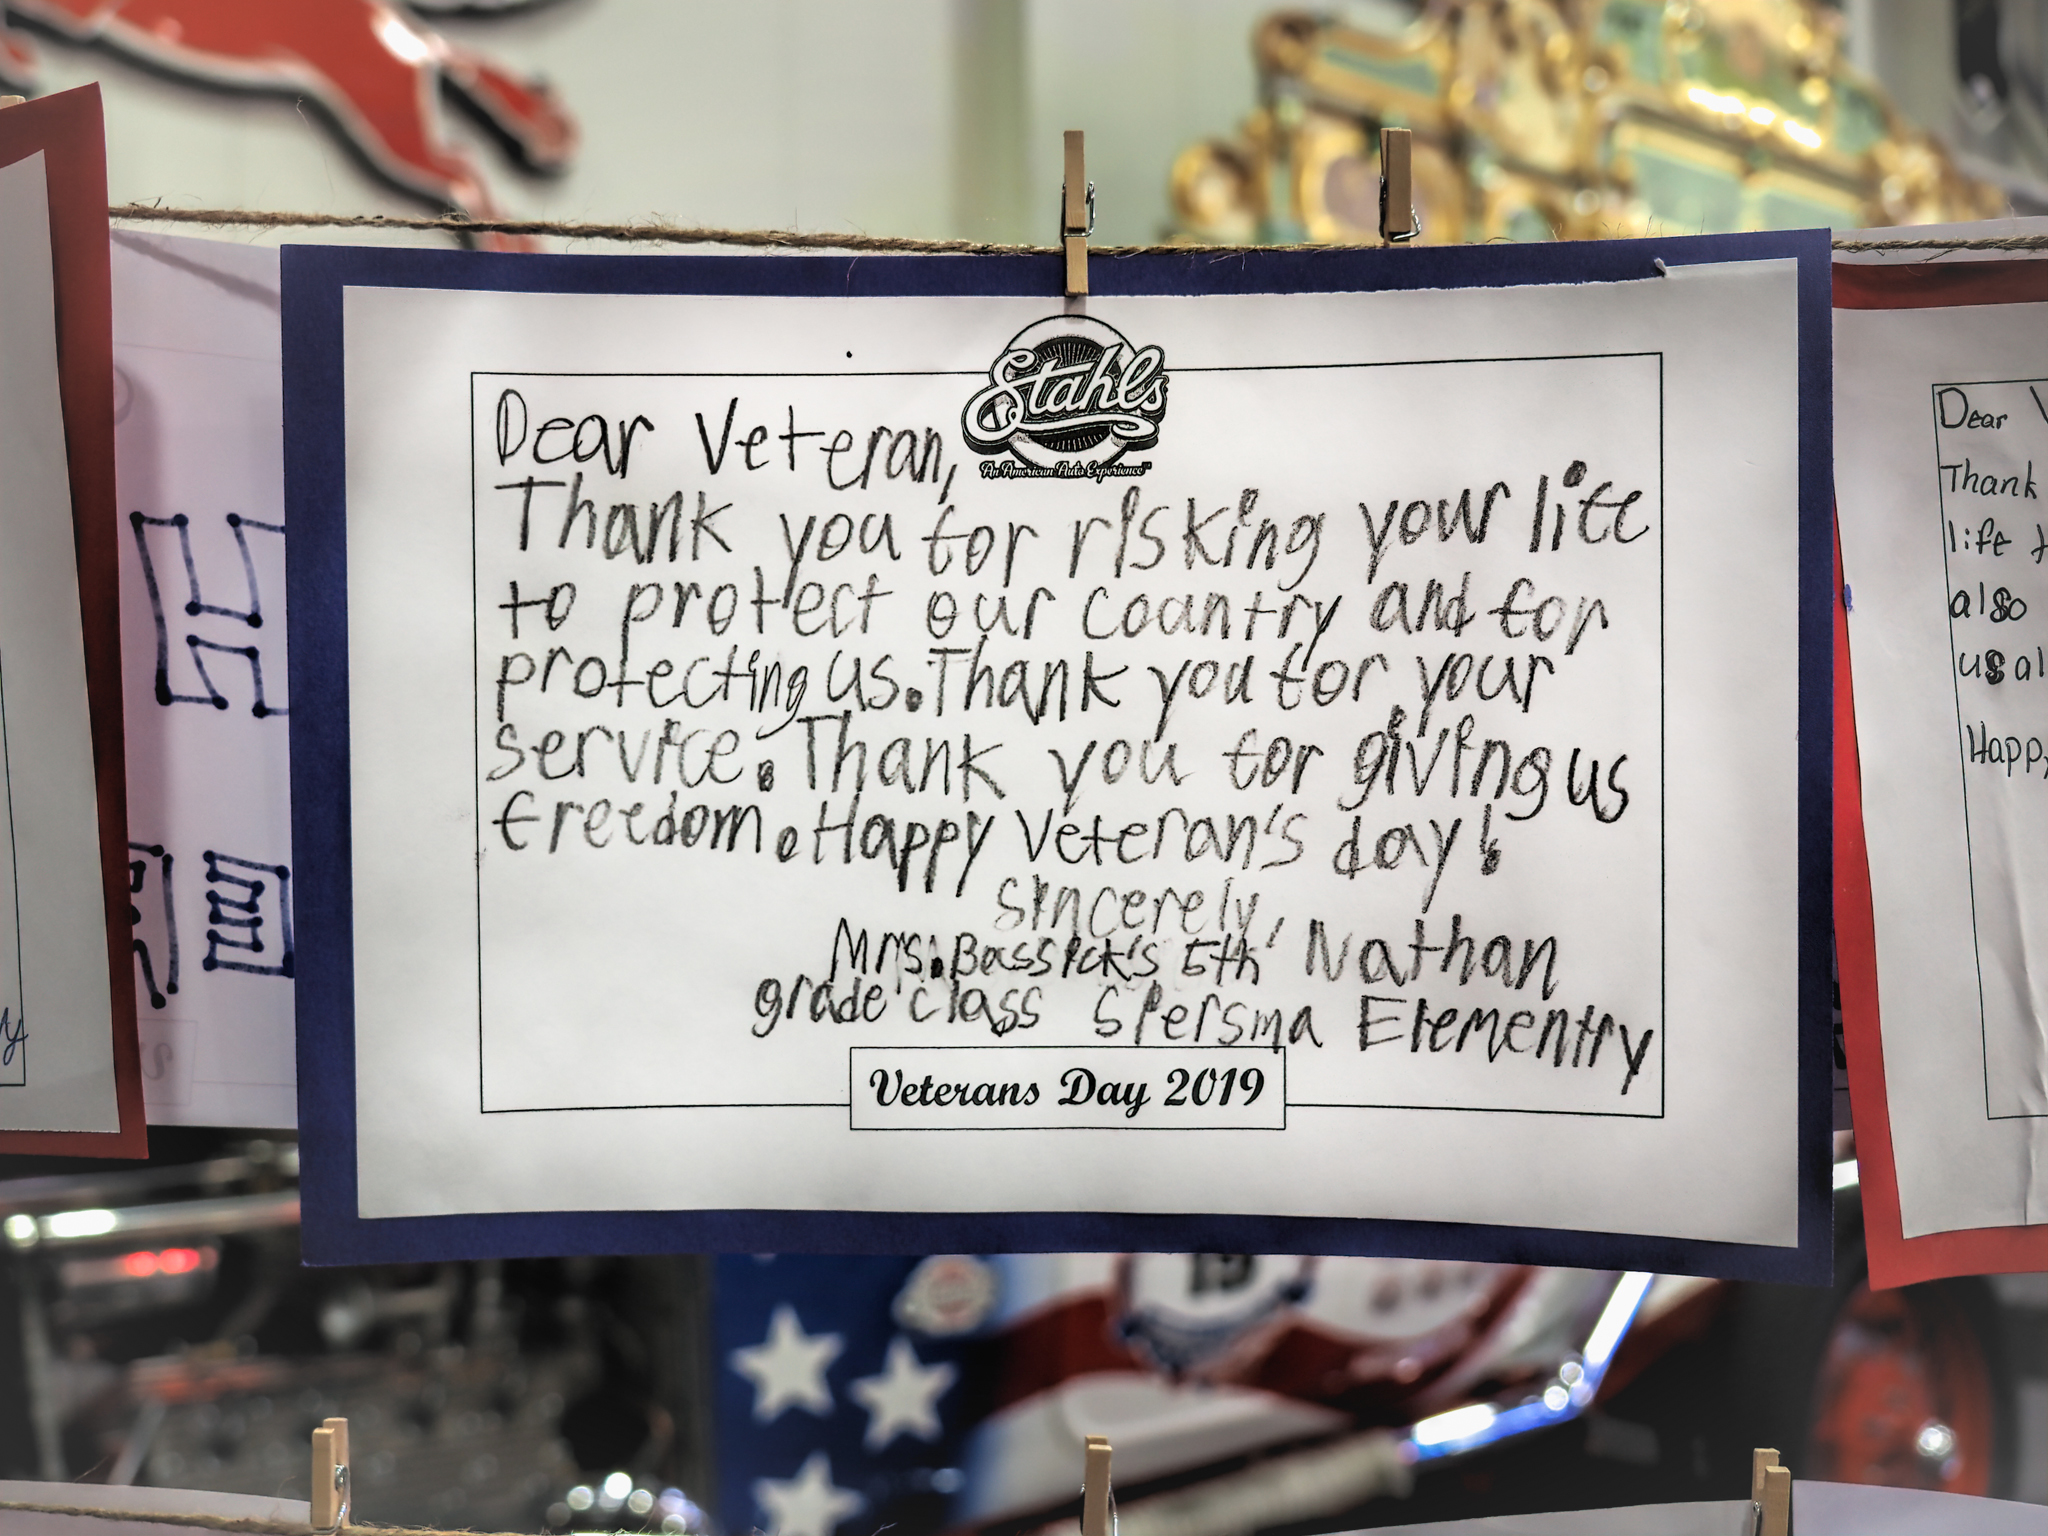 Stahls
An American Auto Experience™
Dear Veteran,
Thank you for risking your life
to protect our country and for
protecting us. Thank you for your
service. Thank you for giving us
freedom. Happy Veteran's day!
Sincerely,
Mrs. Bassick's 5th Nathan
grade class Siersma Elementry
Veterans Day 2019
Dear
Thank
life
also
us al
Happy
19